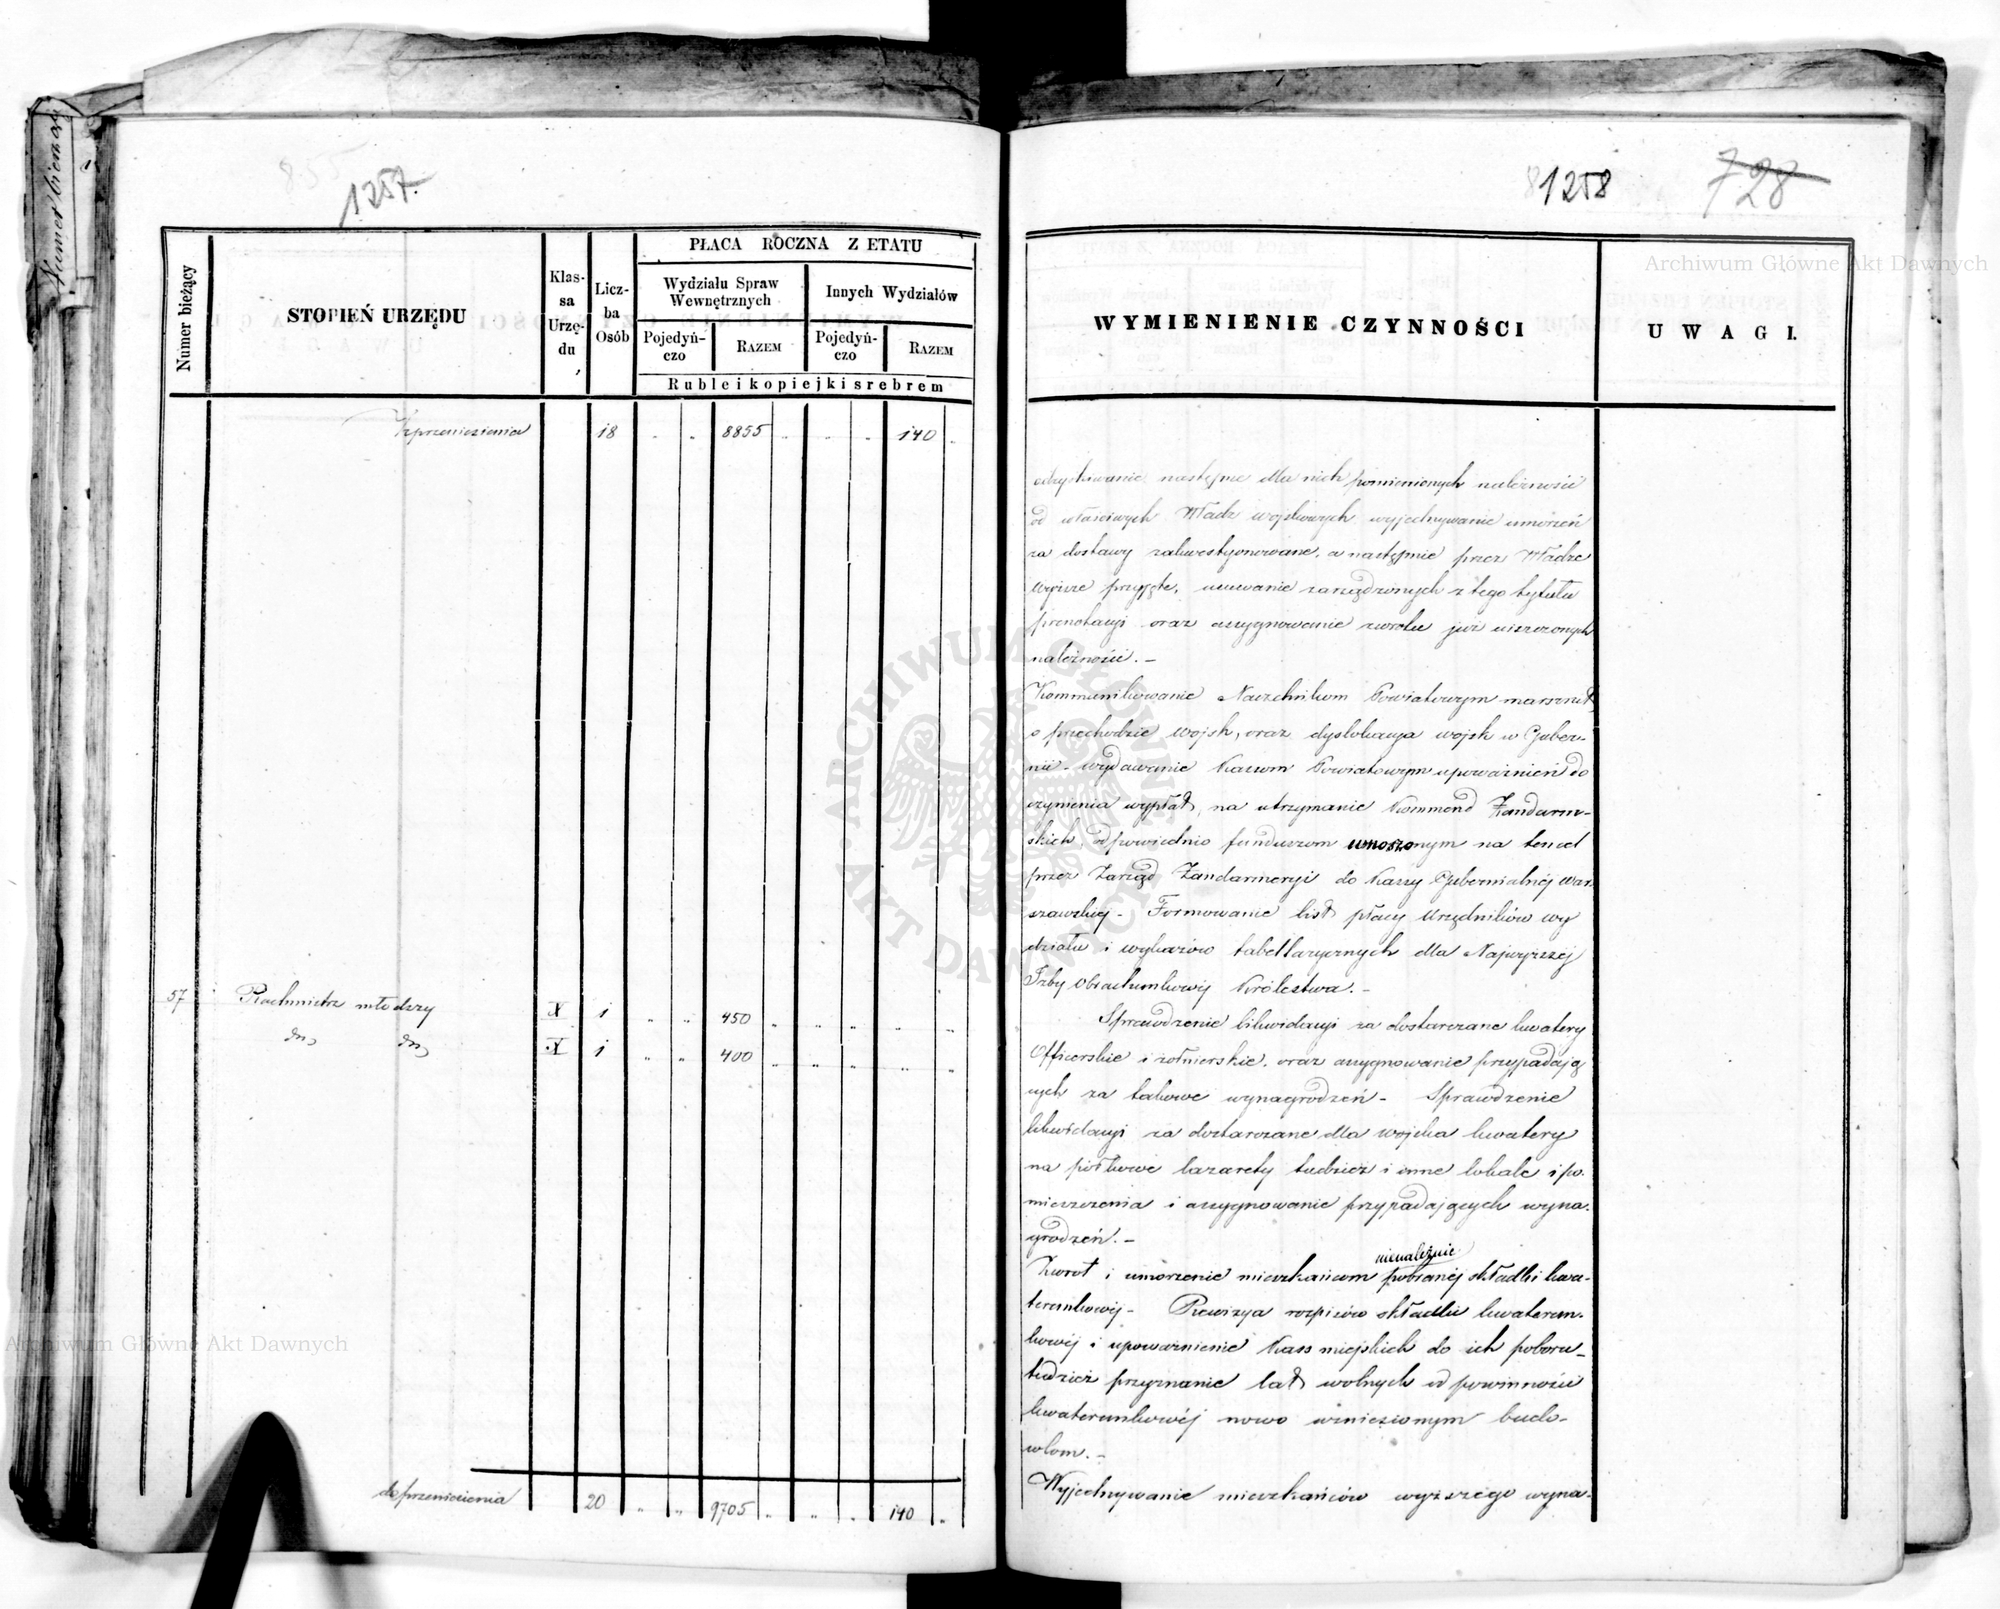 Numer bieżący
855
1257.
Numer bieżący
STOPIEŃ URZĘDU
Klas-
sa
Urzę-
du
Licz-
ba
Osób
PŁACA ROCZNA Z ETATU
Wydziału Spraw
Wewnętrznych
Innych Wydziałów
Pojedyń-
czo
RAZEM
Pojedyń-
czo
RAZEM
Ruble i kopiejki srebrem
Z przeniesienia 18 „ „ 8855 „ „ „ 140 „
57 Rachmistrz młodszy X 1 „ „ 450 „ „ „ „ „
dto dto X 1 „ „ 400 „ „ „ „ „
do przeniesienia 20 „ „ 9705 „ „ „ 140 „
1258
728
WYMIENIENIE CZYNNOŚCI
UWAGI.
odzyskiwanie następne dla nich pomienionych należności
od właściwych Władz wojskowych wyjednywanie umorzeń
za dostawy zakwestyonowane, a następnie przez Władze
wyższe przyjęte, usuwanie zarządzonych z tego tytułu
prenotacyi oraz assygnowanie zwrotu już uiszczonych
należności. –
Kommunikowanie Naczelnikom Powiatowym marszrut
o przechodzie wojsk, oraz dyslokacya wojsk w Guber-
nii – wydawanie Kassom Powiatowym upoważnień do
czynienia wypłat, na utrzymanie Kommend Żandarm-
skich, odpowiednio funduszom wnoszonym na ten cel
przez Zarząd Żandarmeryi do Kassy Gubernialnéj War-
szawskiéj – Formowanie list płacy Urzędników wy
działu i wykazów tabellarycznych dla Najwyższéj
Izby Obrachunkowéj Królestwa. –
Sprawdzenie likwidacyi za dostarczane kwatery
Officerskie i żołnierskie, oraz assygnowanie przypadają
cych za takowe wynagrodzeń – Sprawdzenie
likwidacyi za dostarczane dla wojska kwatery
na pułkowe lazarety tudzież i inne lokale i po-
mieszczenia i assygnowanie przypadających wyna-
grodzeń. –
nienależnie
Zwrot i umorzenie mieszkańcom pobranéj składki kwa-
terunkowéj – Rewizya rozpisów składki kwaterun-
kowéj i upoważnienie Kass miejskich do ich poboru –
tudzież przyznanie lat wolnych od powinności
kwaterunkowéj nowo wzniesionym budo-
wlom. –
Wyjednywanie mieszkańców wyższego wyna-
Archiwum Główne Akt Dawnych
Archiwum Główne Akt Dawnych
ARCHIWUM GŁÓWNE AKT DAWNYCH